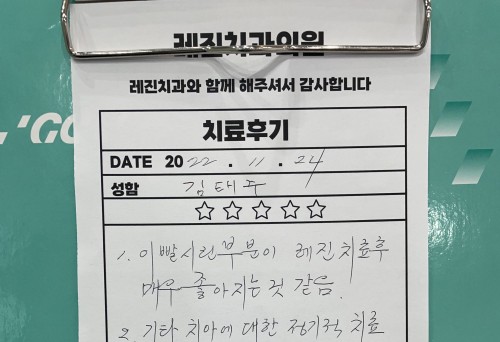 레진치과의원
레진치과와 함께 해주셔서 감사합니다
'GC
치료후기
DATE 2022 . 11 . 24
성함 김태주
1. 이빨시린부분이 레진치료후
매우 좋아지는것 같음.
2. 기타 치아에 대한 정기적 치료